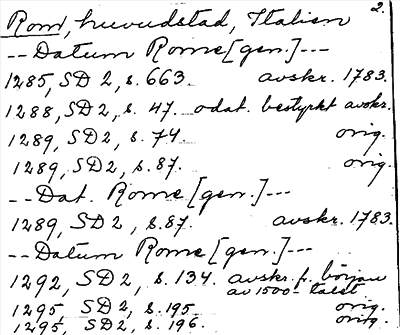 2.
Rom, huvudstad, Italien
-- Datum Rome [gen.] ---
1285, SD 2, s. 663. avskr. 1783.
1288, SD 2, s. 47. odat. bestyrkt avskr.
1289, SD 2, s. 74. orig.
1289, SD 2, s. 87. orig.
-- Dat. Rome [gen.] ---
1289, SD 2, s. 87. avskr. 1783.
-- Datum Rome [gen.] ---
1292, SD 2, s. 134. avskr. f. början
av 1500-talet
1295, SD 2, s. 195. orig.
1295, SD 2, s. 196. orig.